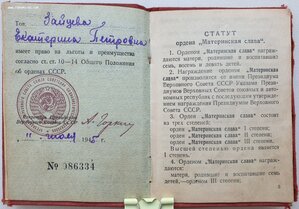 Тов. Зайцева
Екатерина Петровна
имеет право на льготы и преимущества
согласно ст. ст. 10—14 Общего Положения
об орденах СССР.
Секретарь Президиума
Верховного Совета СССР
А. Горкин
"11" июля 1945 г.
№ 986334
СТАТУТ
ордена „Материнская слава"
1. Орденом „Материнская слава" награждаются
матери, родившие и воспитавшие
семь, восемь и девять детей.
2. Награждение орденом „Материнская
слава" производится от имени Президиума
Верховного Совета СССР Указами Президиумов
Верховных Советов союзных и автономных
республик с последующим
награждением Президиумом Верховного
Совета СССР.
3. Орден „Материнская слава" состоит
из трёх степеней:
орден „Материнская слава" I степени;
орден „Материнская слава" II степени;
орден „Материнская слава" III степени.
Высшей степенью ордена является
I степень.
4. Орденом „Материнская слава" награждаются:
матери, родившие и воспитавшие семь
детей, — орденом III степени;